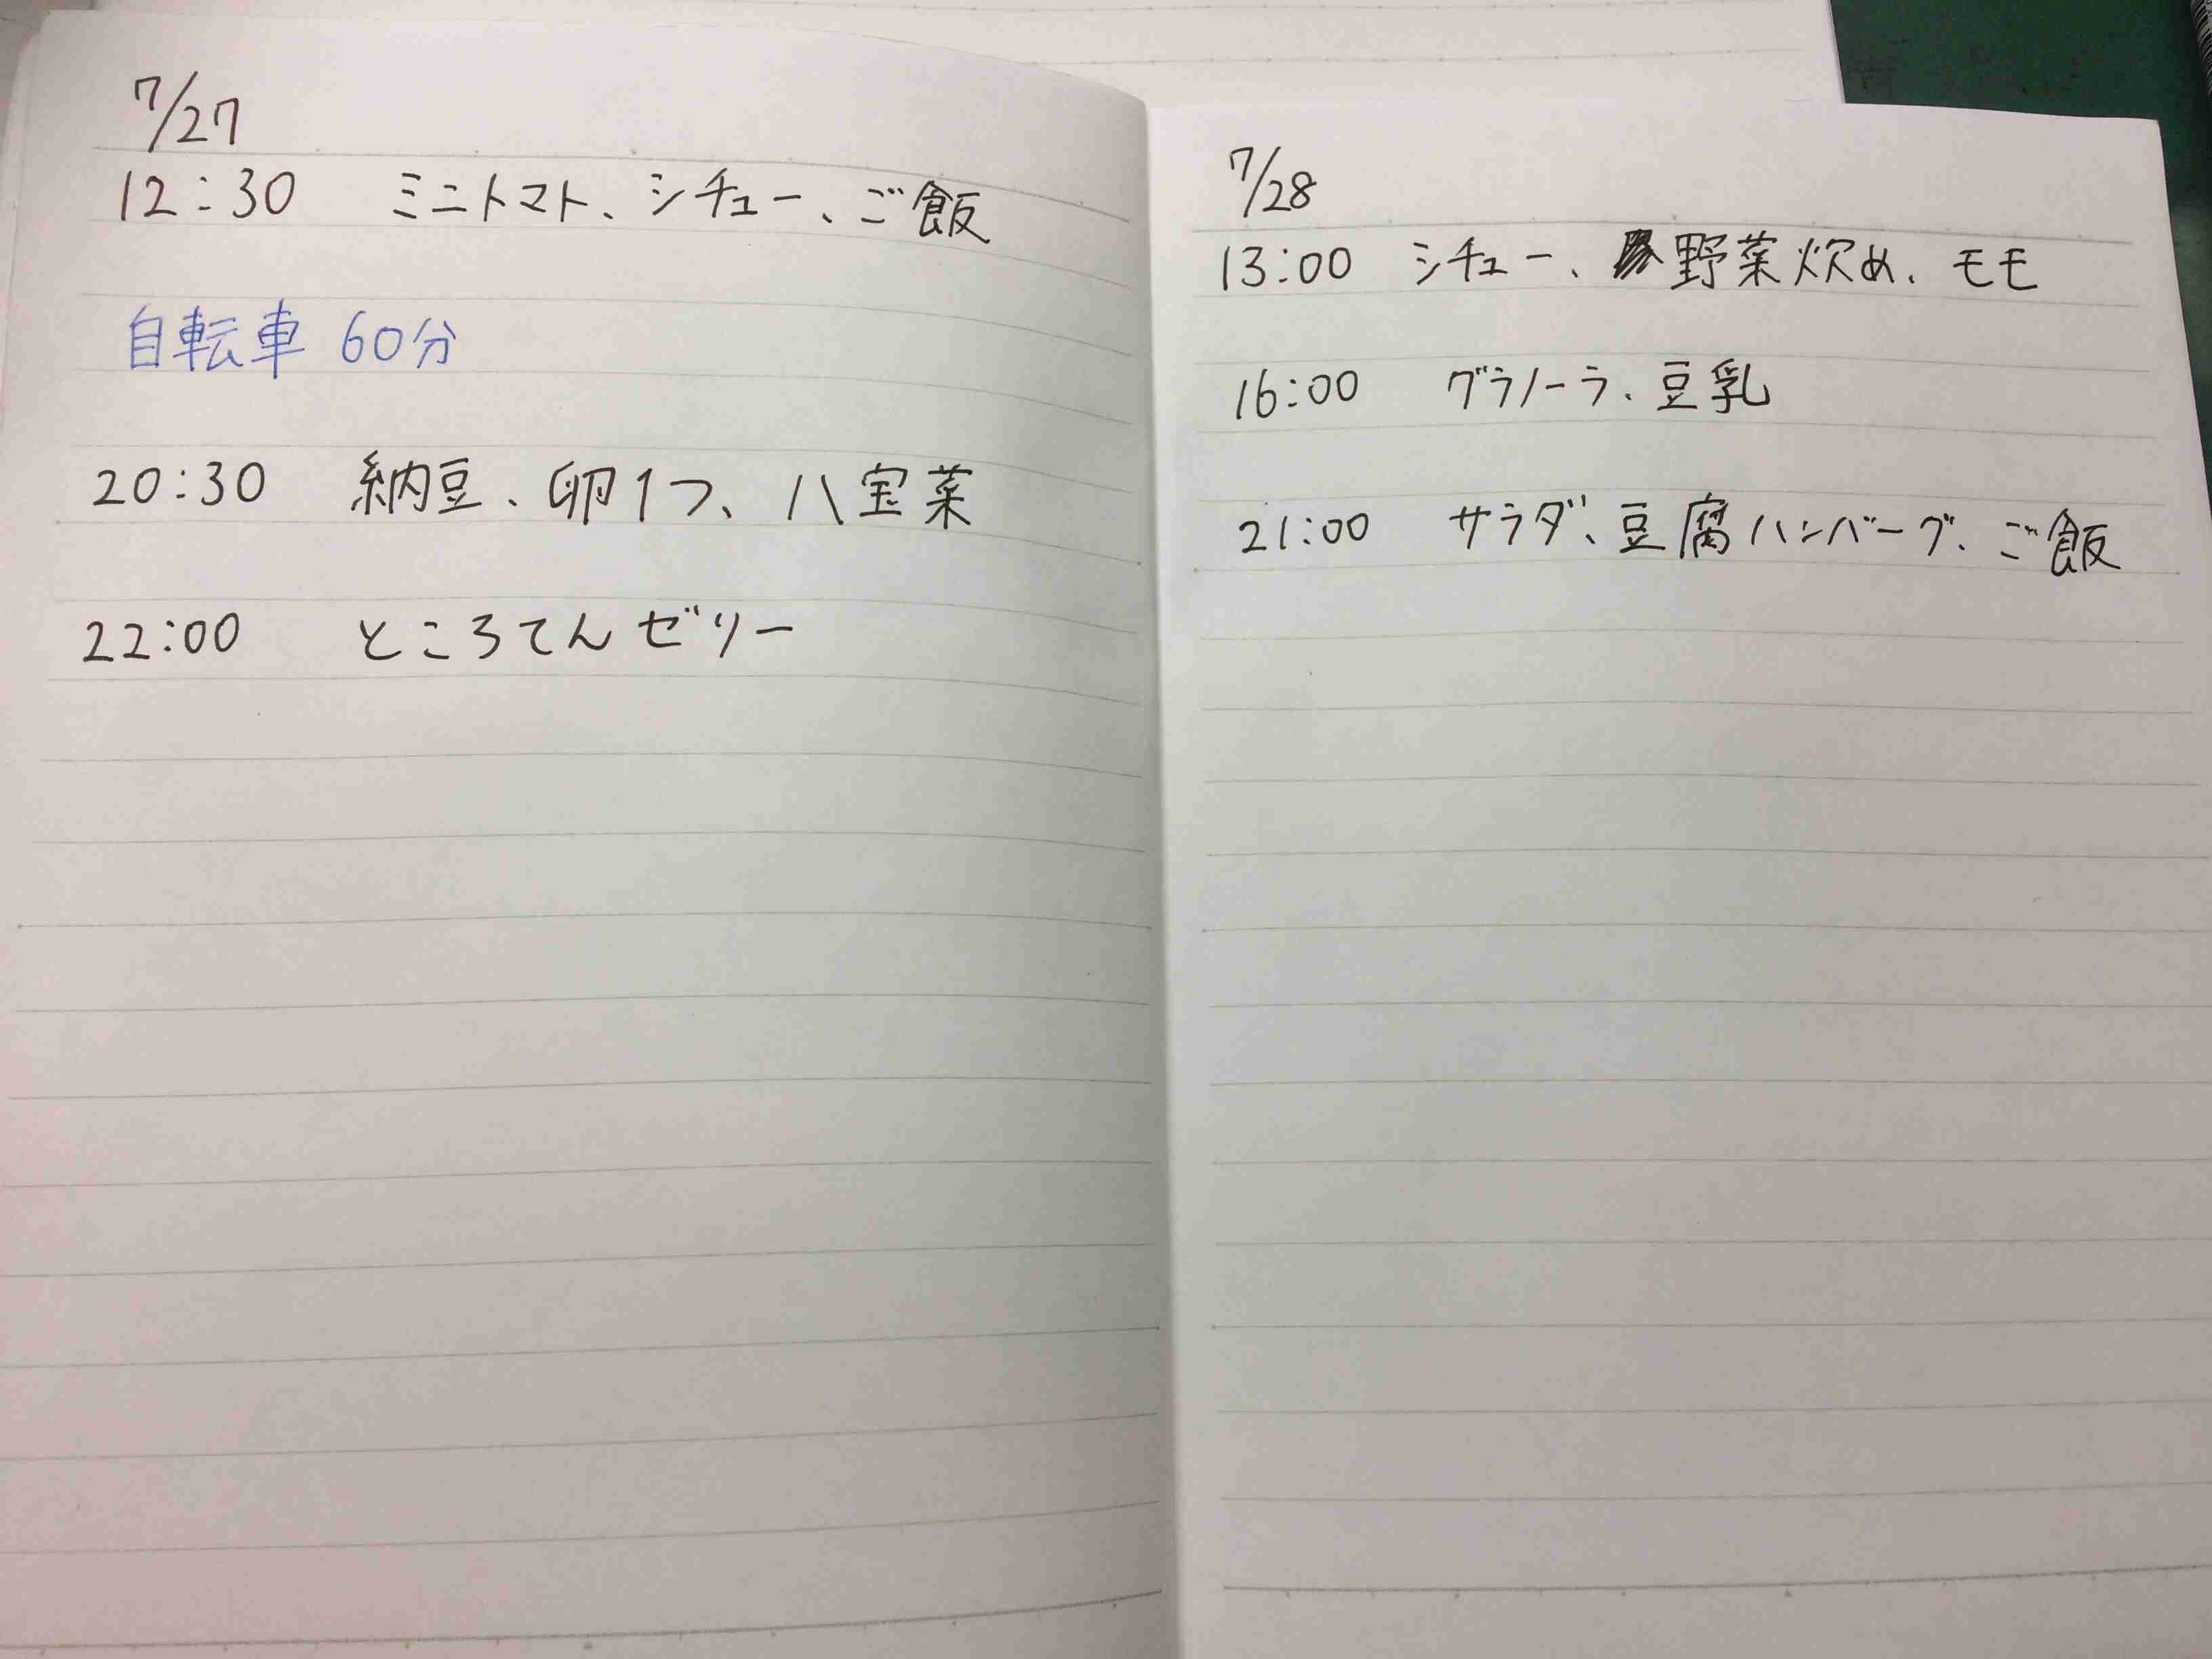 7/27
12:30 ミニトマト、シチュー、ご飯
自転車 60分
20:30 納豆、卵1つ、八宝菜
22:00 ところてんゼリー
7/28
13:00 シチュー、野菜炊め、モモ
16:00 グラノーラ、豆乳
21:00 サラダ、豆腐ハンバーグ、ご飯